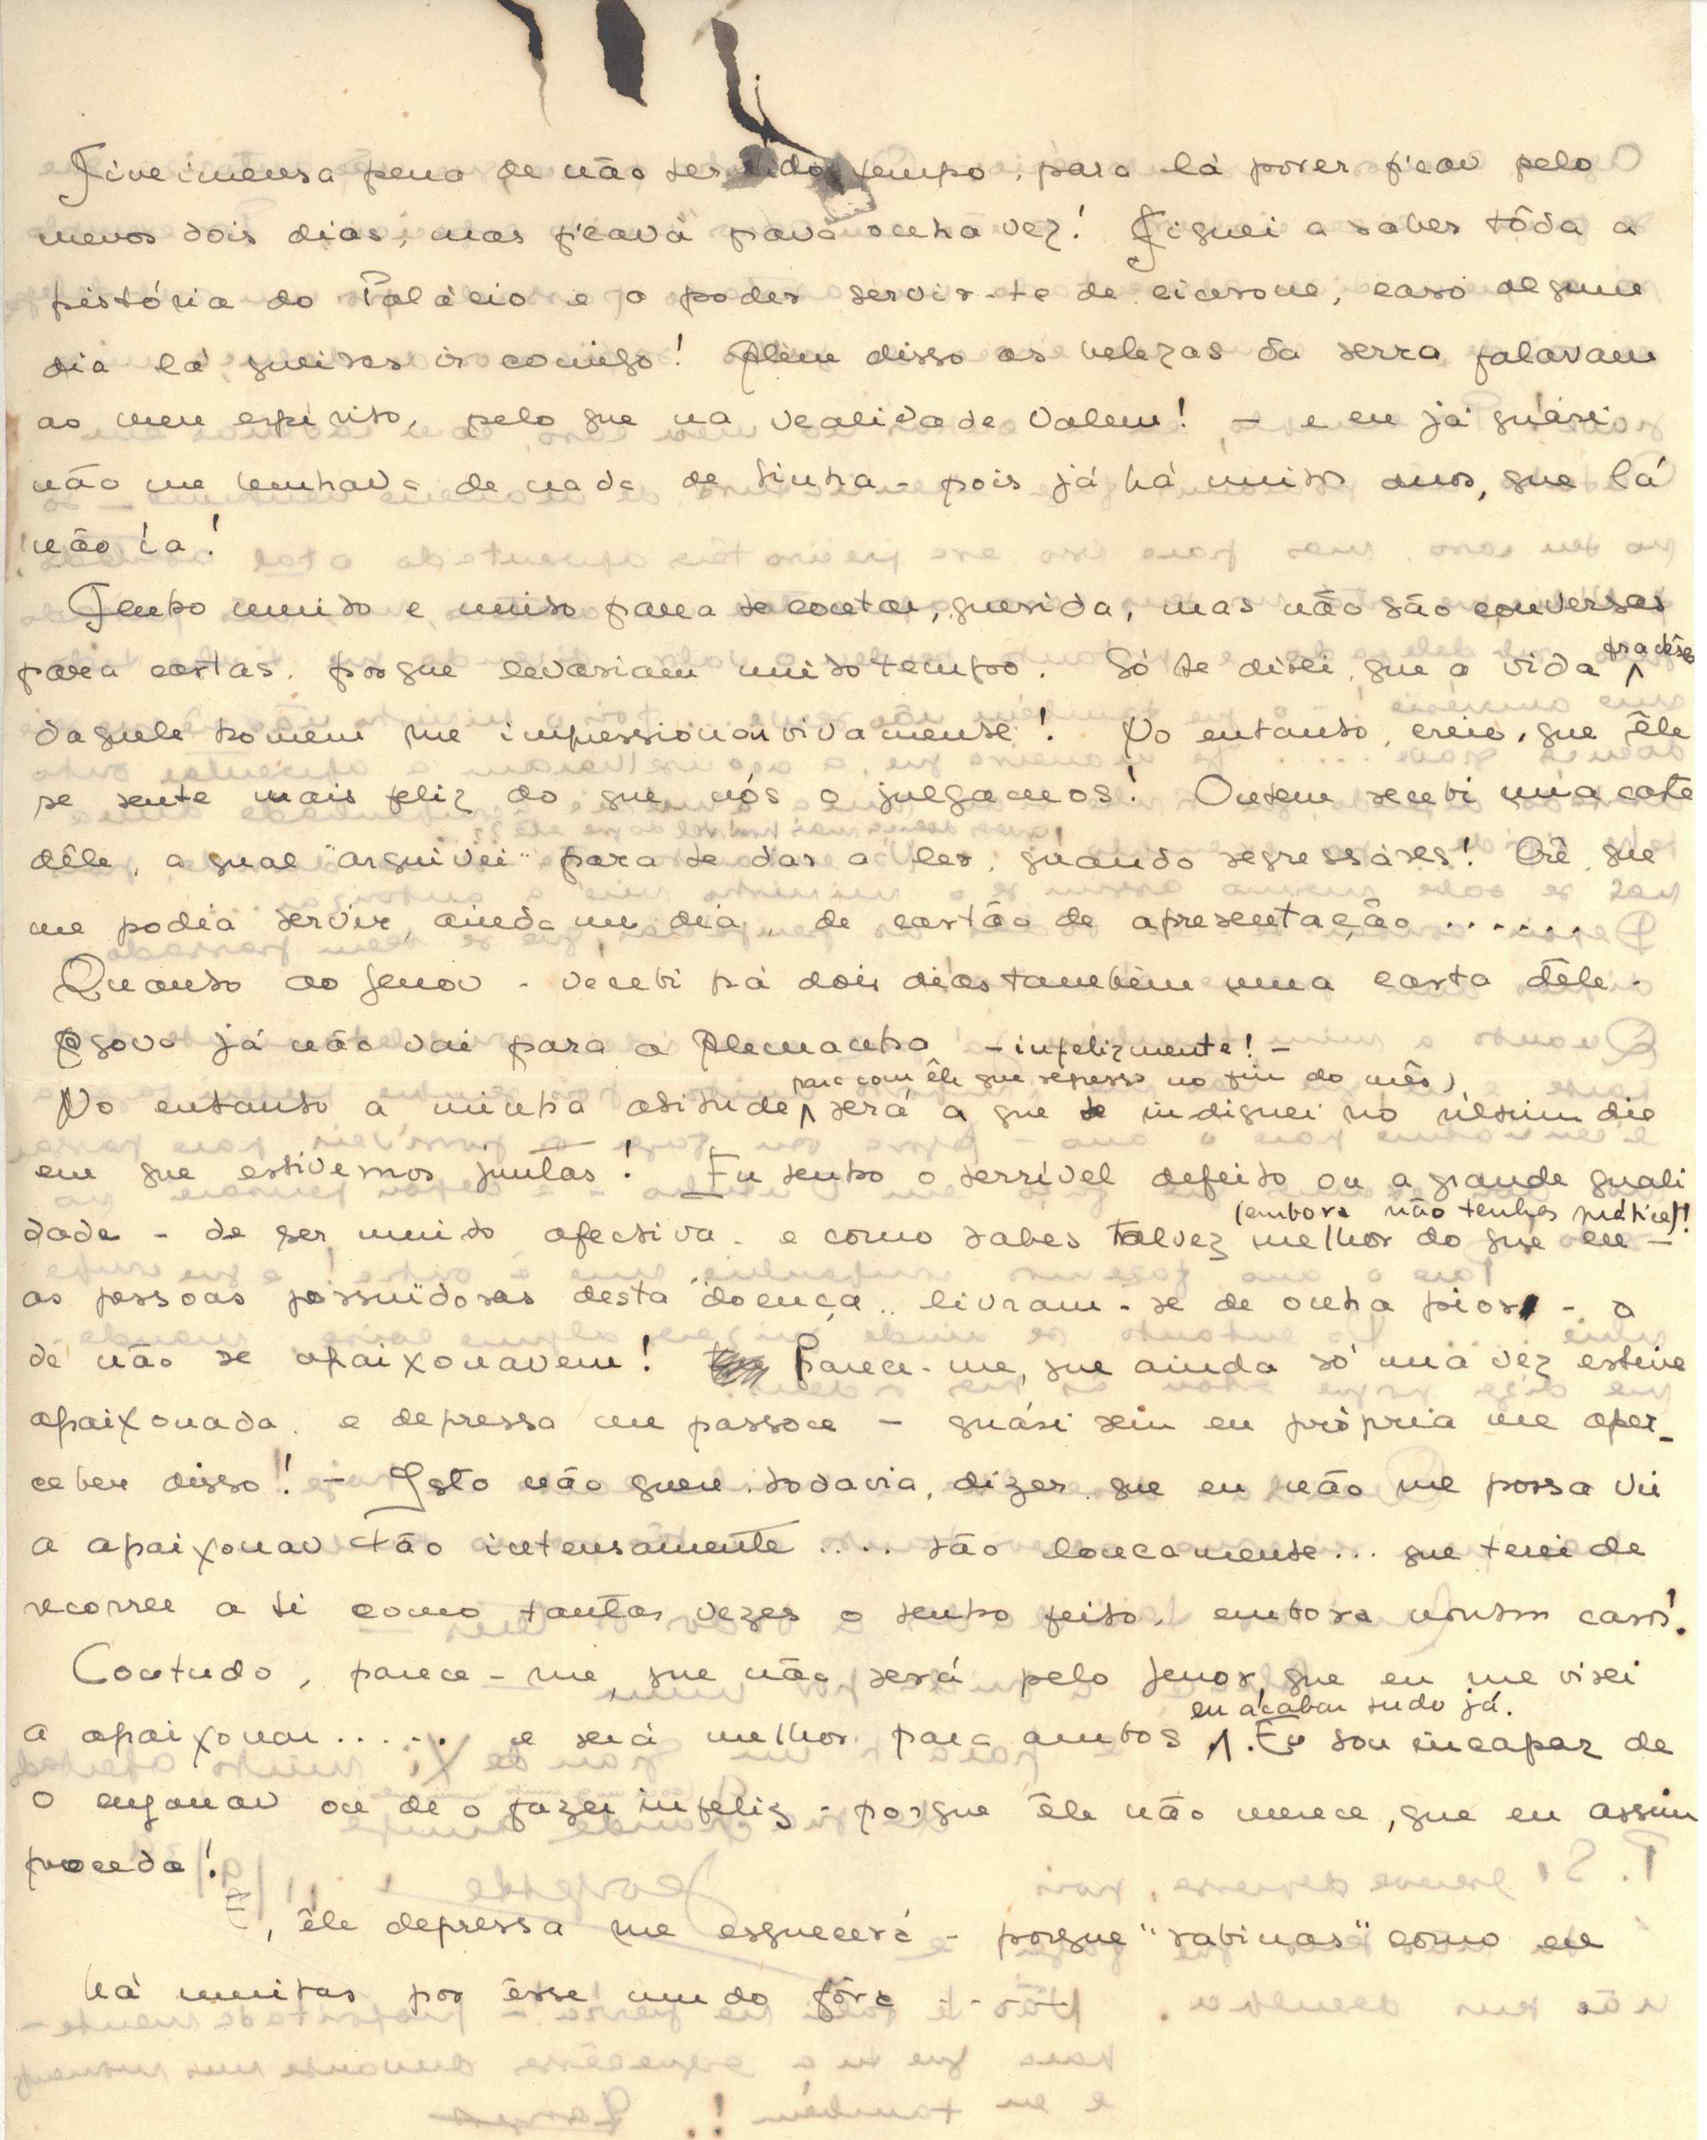 Tive imensa pena de não ter tido tempo, para lá poder ficar pelo
menos dois dias, mas ficará para outra vez! Fiquei a saber tôda a
história do Palácio e a poder servir-te de cicerone, caso algum
dia lá queiras ir comigo! Além disso as belezas da serra falavam
ao meu espírito, pelo que na realidade valem! - e eu já quási
não me lembrava de nada de Sintra - pois já há muitos anos, que lá
não ía!
Tenho muito e muito para te contar, querida, mas não são conversas
para cartas, porque levariam muito tempo. Só te direi, que a vida
daquele homem me impressionou vivamente! No entanto, creio, que êle
se sente mais feliz do que nós o julgamos! Ontem recebi uma carta
dêle, a qual "arquivei" para te dar a ler, quando regressares! Crê, que
me podia servir, ainda um dia, de cartão de apresentação .......
Quanto ao Jenor - recebi há dois dias também uma carta dêle.
Agora já não vai para a Alemanha - infelizmente! -
para com êle que regressa no fim do mês,
No entanto a minha atitude será a que te indiquei no último dia
em que estivemos juntas! Eu tenho o terrível defeito ou a grande quali
(embora não tenhas prática)!
dade - de ser muito afectiva - e como sabes talvez melhor do que eu -
as pessoas possuïdoras desta "doença", livram-se de outra pior - a
de não se apaixonarem! Parece-me, que ainda só uma vez estive
apaixonada, e depressa me passou - quási sem eu própria me aper-
ceber disso! - Isto não quer, todavia, dizer, que eu não me possa vir
a apaixonar tão intensamente .... tão loucamente... que terei de
recorrer a ti como tantas vezes o tenho feito, embora noutros casos!
Contudo, parece-me, que não será pelo Jenor, que eu me virei
eu acabar tudo já.
a apaixonar ..... e será melhor para ambos. Eu sou incapaz de
o enganar ou de o fazer infeliz - porque êle não merece, que eu assim
proceda!
, êle depressa me esquecerá - porque "sabinas" como eu
há muitas por êsse mundo fóra ....